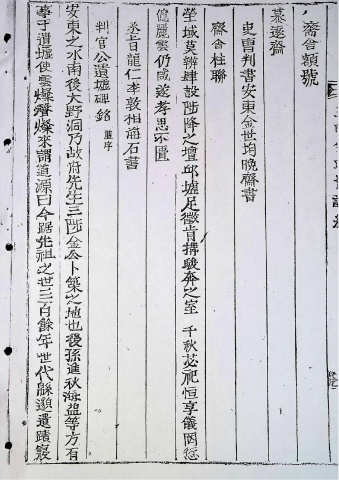 齋舍額號
慕遠齋
吏曹判書安東金世均晩齋書
齋舍柱聯
塋域莫辨肆設陟降之壇邱墟足徵肯搆駿奔之室 千秋苾祀恒享儀罔愆
億麗雲仍咸遂孝思不匱
永嘉
判官公遺墟碑銘 並序
安東之水南後大野洞乃故府先生三陟金公卜築之地也後孫進秋海益等方有
事于遺墟使雲燦 燦來謂道源曰今距先祖之世三百餘年世代緜邈遺蹟寢